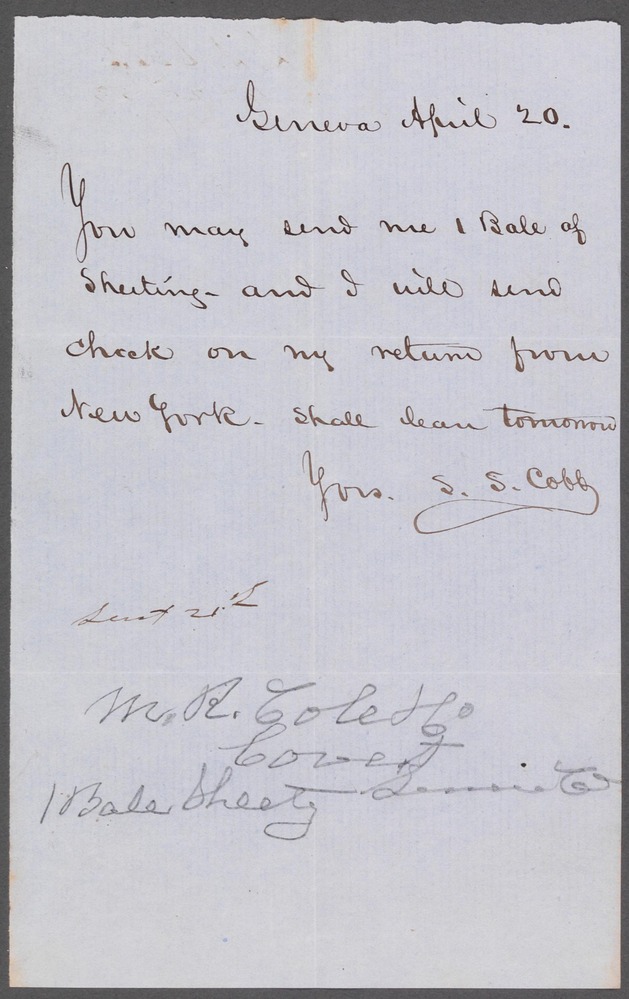 Geneva April 20.
You may send me 1 Bale of
Sheeting - and I will send
check on my return from
New York - Shall lean tomorrow
Yors. S. S. Cobb
Sent 21st
M. R. Cole & Co
Covert
1 Bale Sheetg